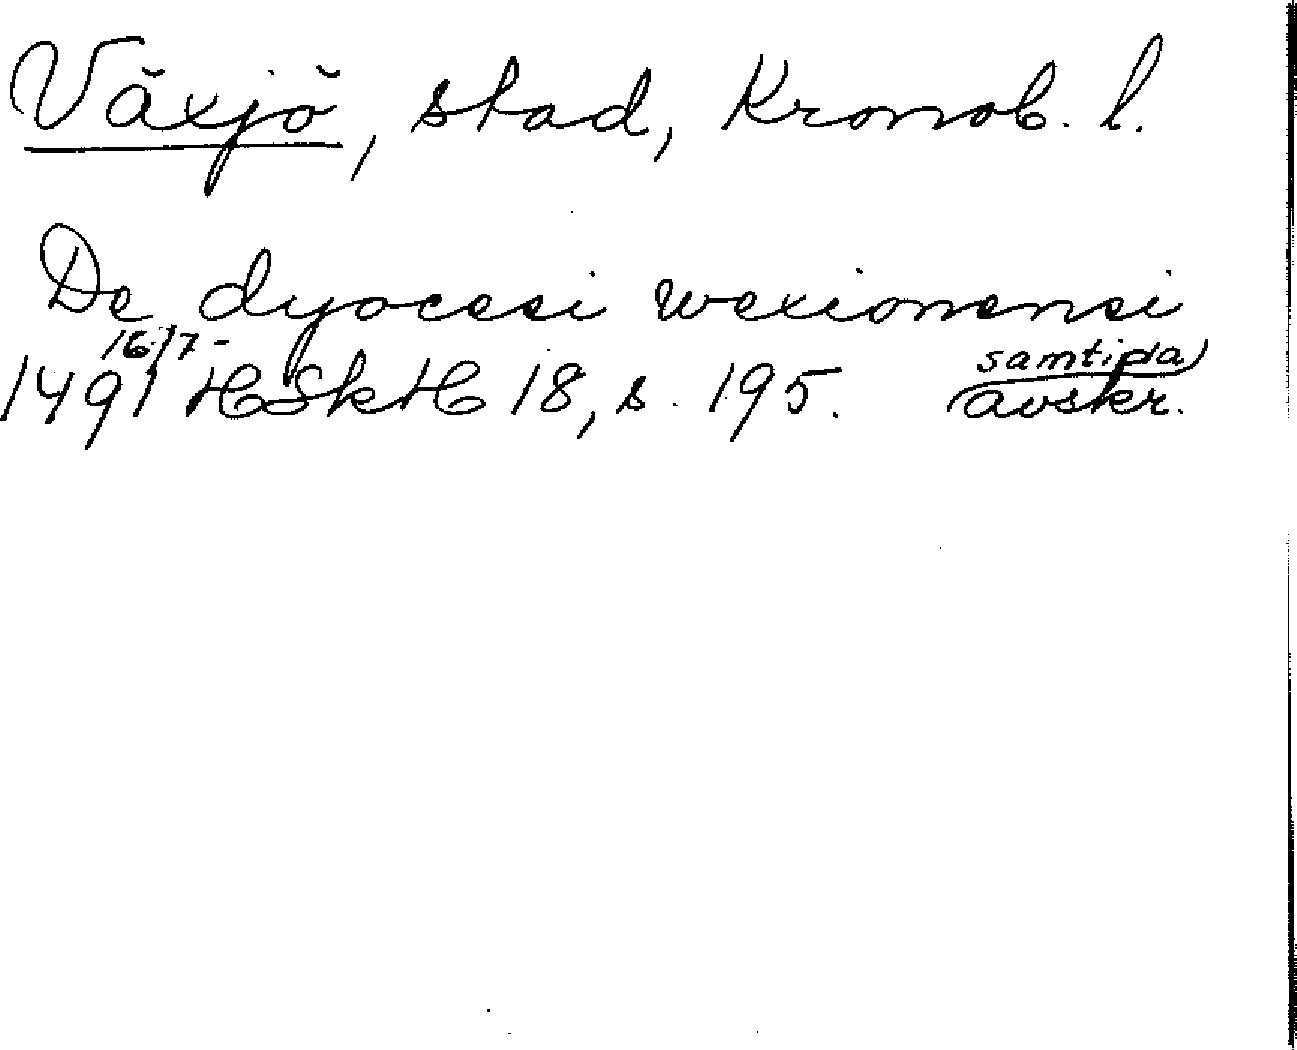 Växjö, stad, Kronob. l.
De dyocesi wexionensi
16/7-
1491 HSkH 18, s. 195. samtida
avskr.